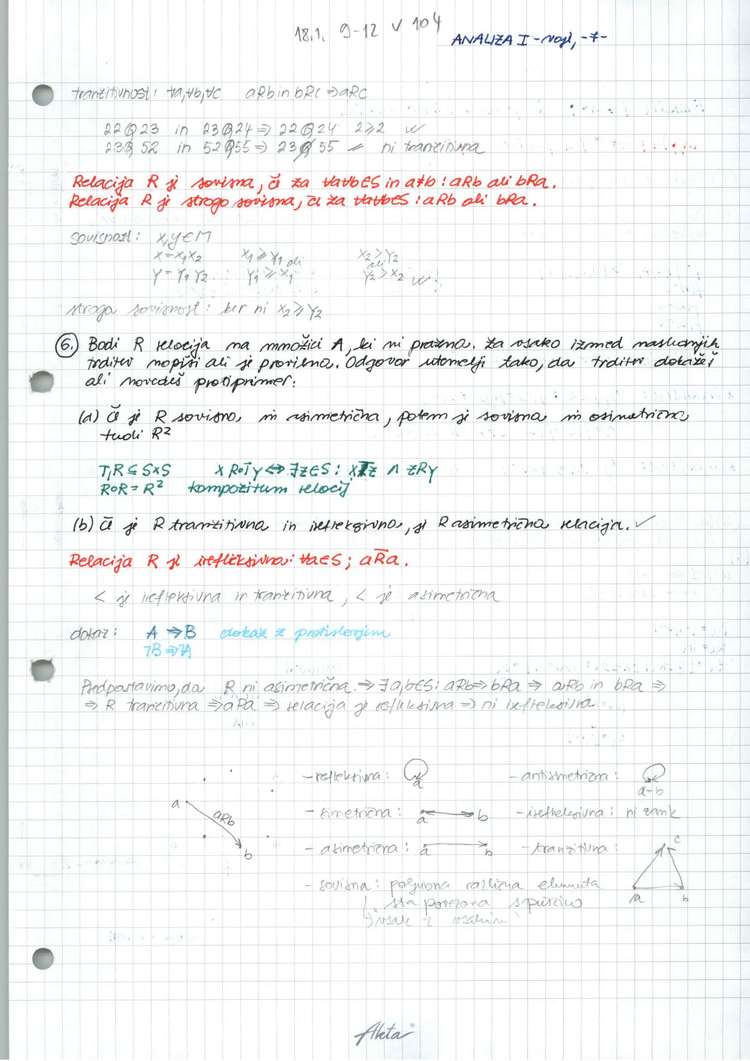 18.1. 9-12 v 104
ANALIZA I - vaje, -7-
tranzitivnost: ∀a,∀b,∀c aRb in bRc ⇒ aRc
22R23 in 23R24 ⇒ 22R24 2≥2
23R52 in 52R55 ⇒ 23R̸55 ni tranzitivna
Relacija R je sovisna, če za ∀a∀b∈S in a≠b : aRb ali bRa.
Relacija R je strogo sovisna, če za ∀a∀b∈S : aRb ali bRa.
sovisnost: x,y∈M
x=x₁x₂ x₁≥y₁ ali x₂>y₂ ali
y=y₁y₂ y₁≥x₁ y₂>x₂
stroga sovisnost: ker ni x₂≥y₂
6. Bodi R relacija na množici A, ki ni prazna. Za vsako izmed naslednjih
trditev napiši ali je pravilna. Odgovor utemelji tako, da trditev dokažeš
ali navedeš protiprimer.
(a) Če je R sovisna in asimetrična, potem je sovisna in asimetrična
tudi R²
T,R⊆S×S x R∘T y ⇔ ∃z∈S: xTz ∧ zRy
R∘R = R² kompozitum relacij
(b) Če je R tranzitivna in irefleksivna, je R asimetrična relacija. ✓
Relacija R je irefleksivna: ∀a∈S; aR̅a.
< je irefleksivna in tranzitivna, < je asimetrična
dokaz: A ⇒ B dokaz s protislovjem
¬B ⇒ ¬A
Predpostavimo, da R ni asimetrična ⇒ ∃a,b∈S: aRb ⇒ bRa ⇒ aRb in bRa ⇒
⇒ R tranzitivna ⇒ aRa ⇒ relacija je refleksivna ⇒ ni irefleksivna
- refleksivna: a - antisimetrična: a=b
a aRb b
- simetrična: a b - irefleksivna: ni zank
- asimetrična: a b - tranzitivna: a b c
- sovisna: poljubna različna elementa
sta povezana s puščico
vsak z vsakim
Akta